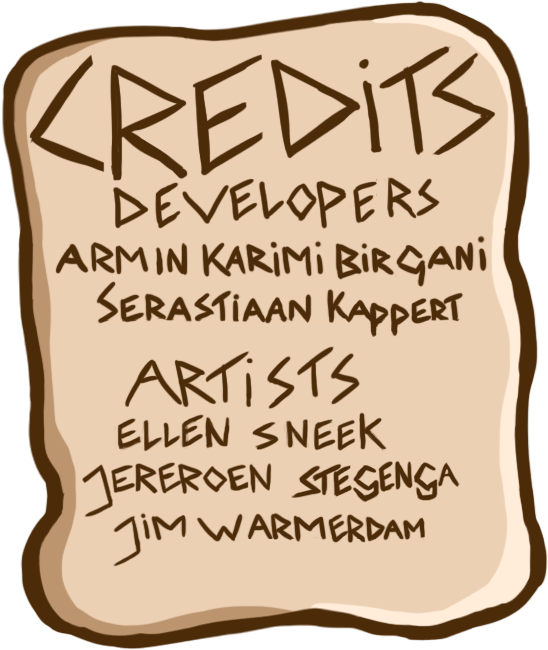 CREDiTS
DEVELOPERS
ARMIN KARiMi BiRGANi
SERASTIAAN KAPPERT
ARTiSTS
ELLEN SNEEK
JEREROEN STEGENGA
JiM WARMERDAM